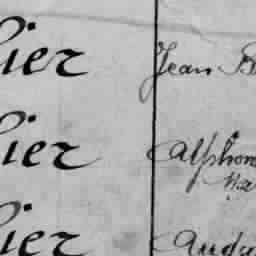 ier Jean B
ier Alphon
ier Auda